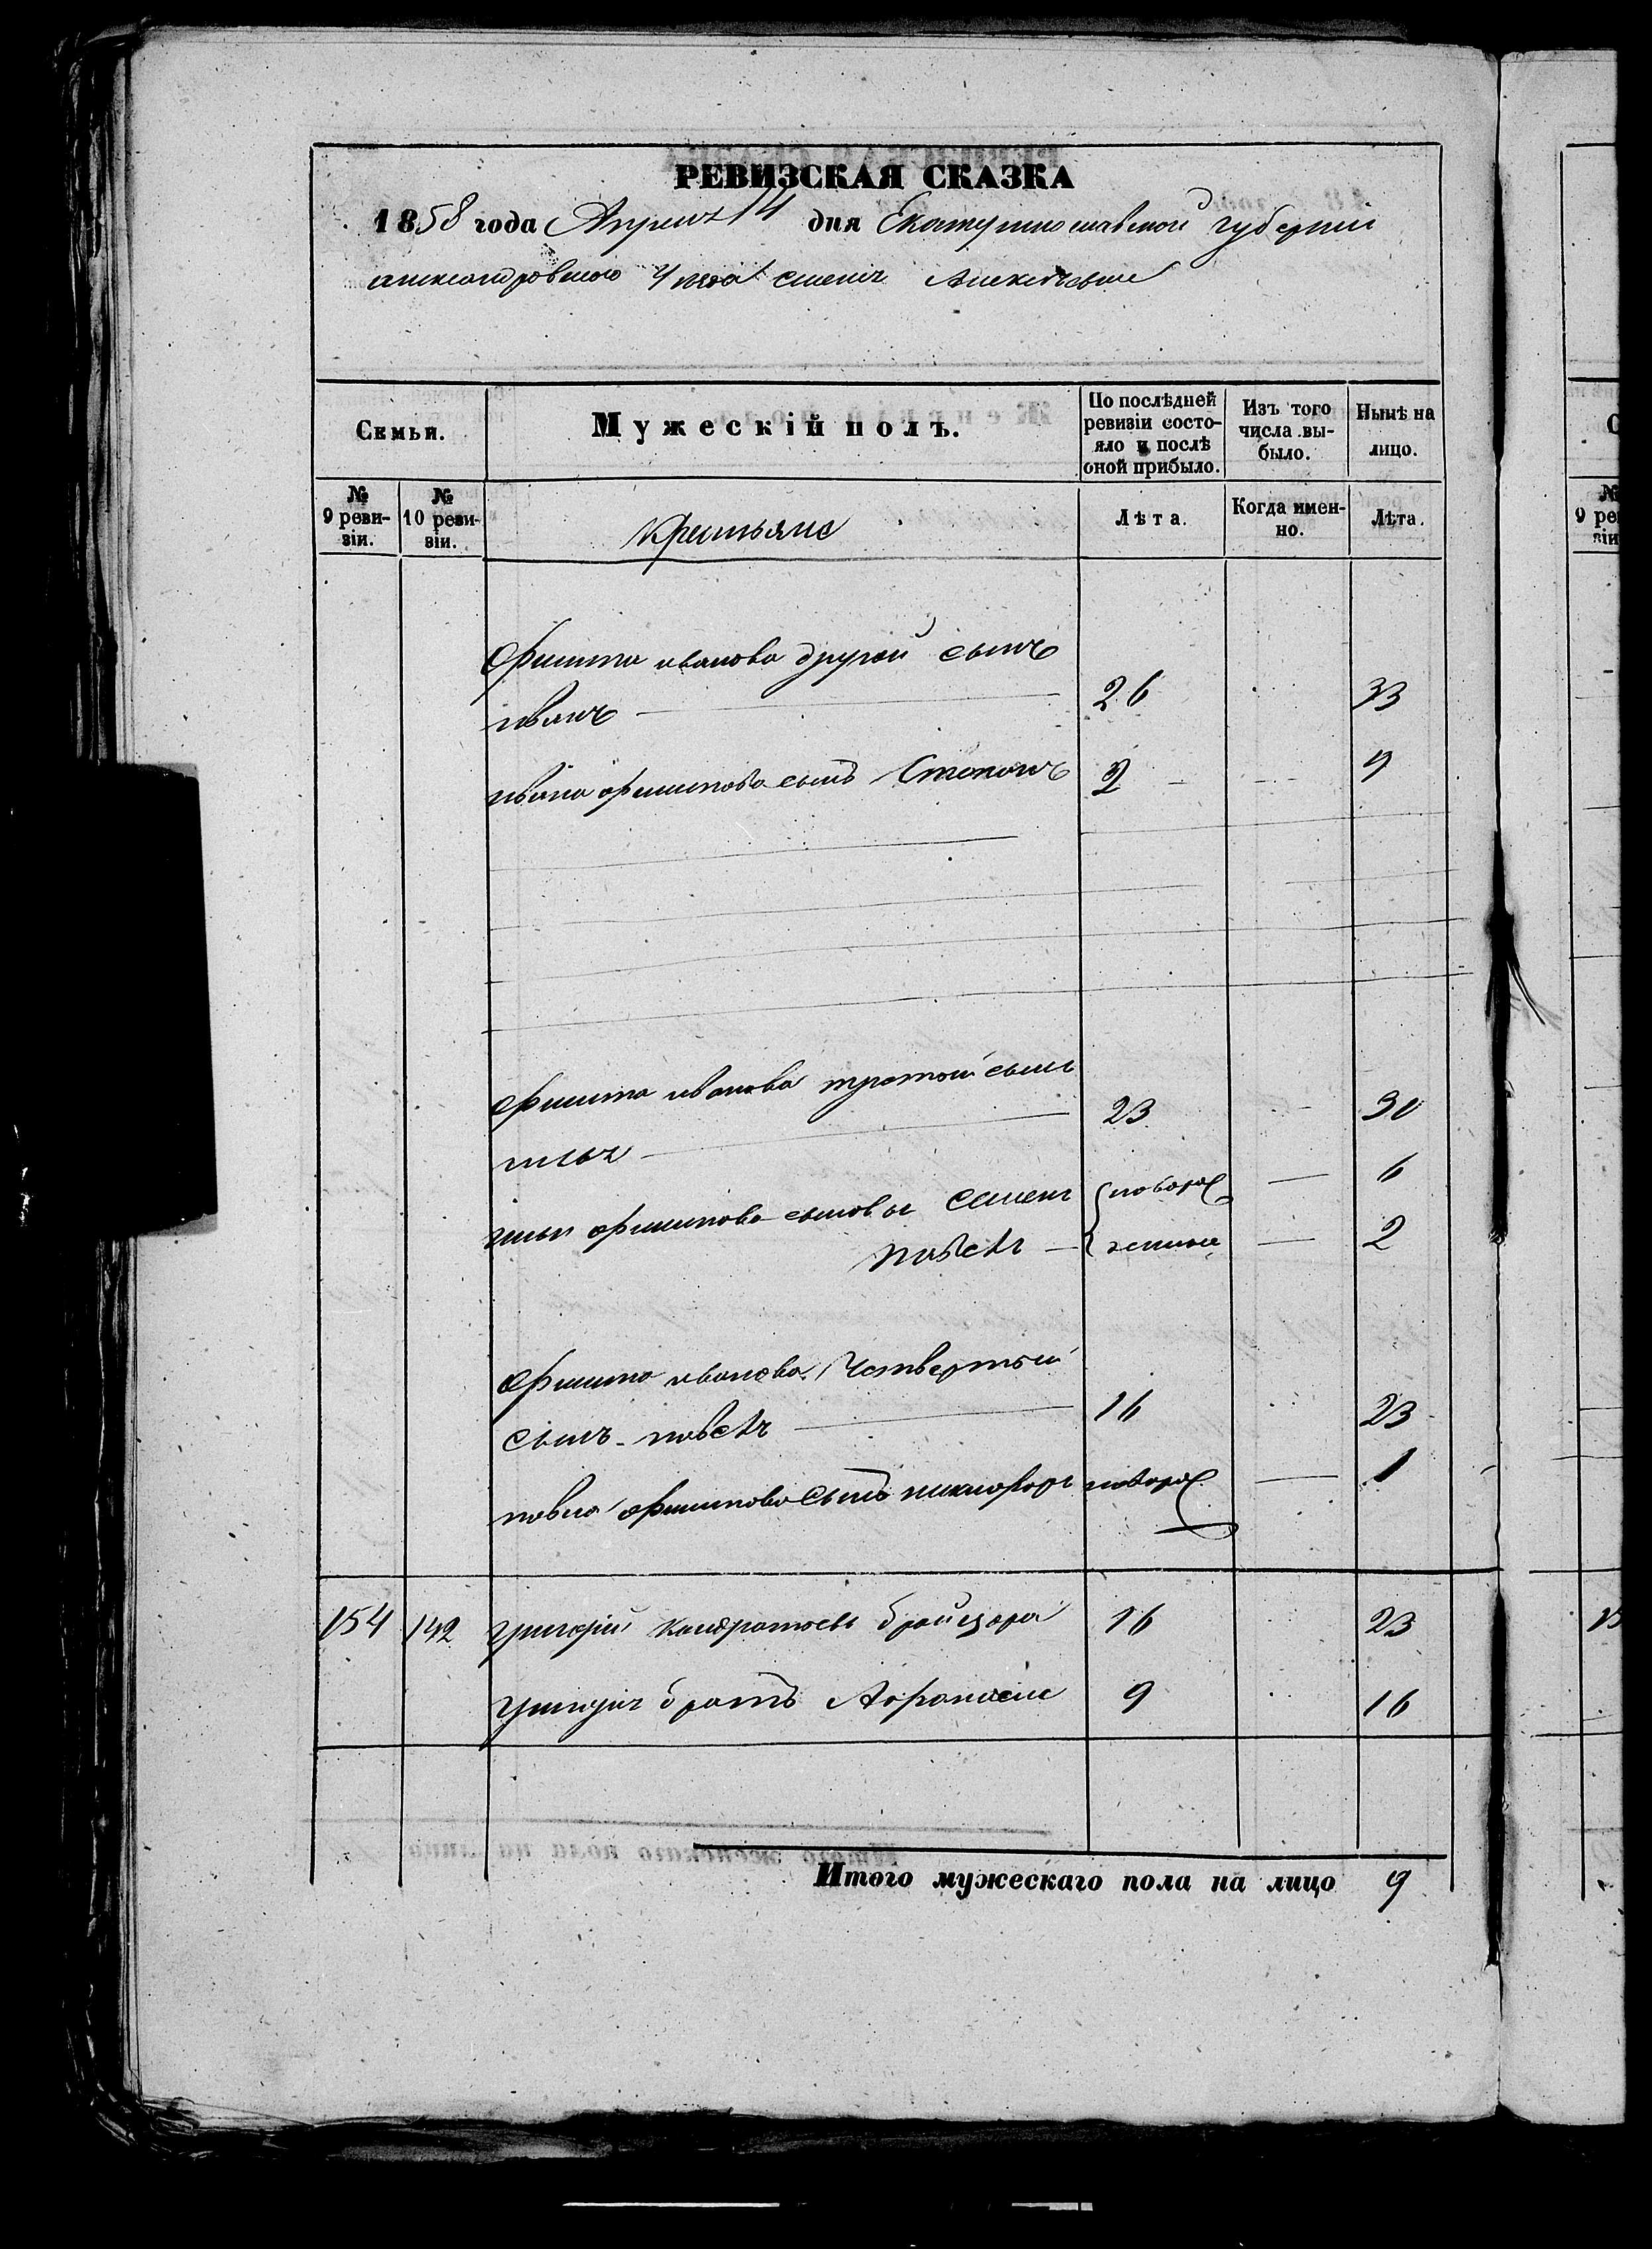 РЕВИЗСКАЯ СКАЗКА
1858 года Апреля 14 дня Екатеринославской губернии
александровского Уезда Алексеевке
Семьи. Мужескій полъ. По послѣдней ревизіи состояло и послѣ оной прибыло. Изъ того числа выбыло. Нынѣ на лицо.
№ 9 ревизіи. № 10 ревизіи. крестьяне Лѣта. Когда именно. Лѣта.
Филипа иванова другой сынъ
иванъ 26 33
ивана филипова сынъ Степанъ 2 9
филипа иванова третой сынъ
илья 23 30
ильи филипова сыновья Семенъ новорож 6
павелъ денные 2
филипа иванова Четвертый
сынъ павелъ 16 23
павла филипова сынъ никифоръ новорож 1
154 142 григорій кондратьевъ 16 23
григорія братъ Афанасій 9 16
Итого мужескаго пола на лицо 9
№ 9 ревизіи